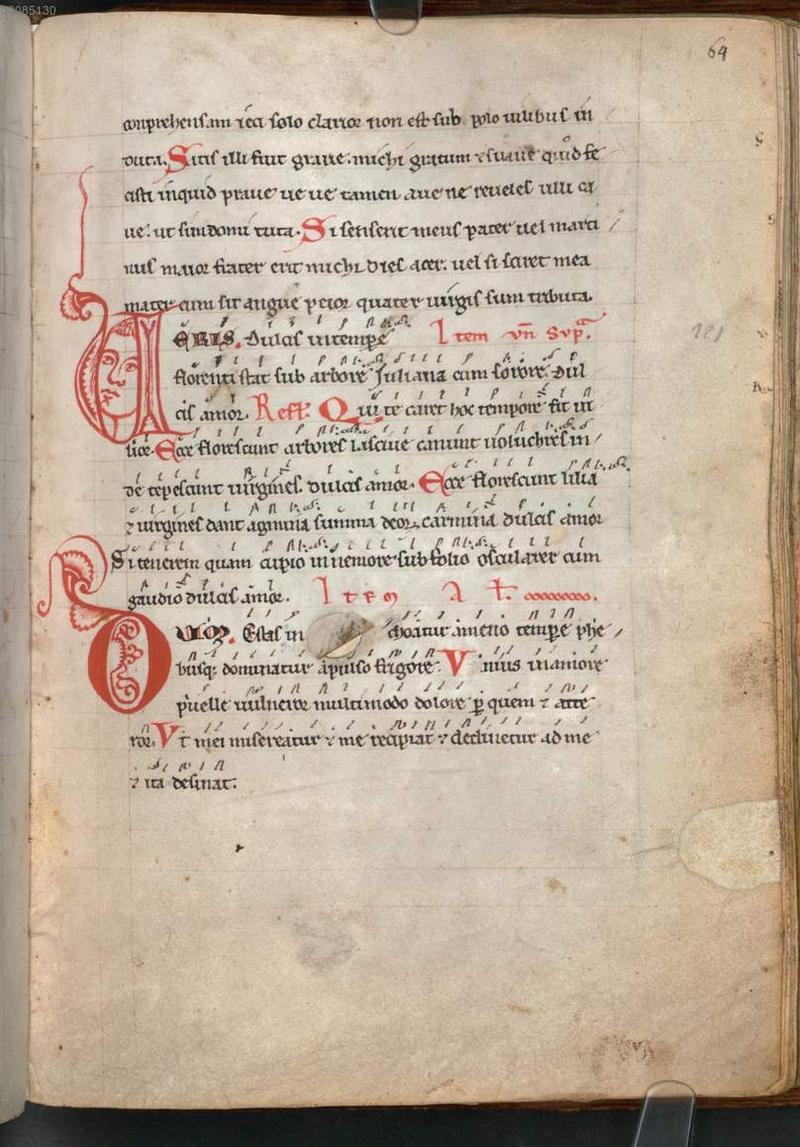 conprehensam solo clarior non est sub polo uilibus in
duta. Satis illi fuit graue. michi gratum ⁊ suaue quid fe
cisti inquid praue ue ue tamen aue ne reueles ulli ca
ue. ut sim domi tuta. Si senserit meus pater uel marti
nus maior frater erit michi dies acer. uel si sciret mea
mater cum sit angue peior quater uirgis sum tributa.
VERIS. dulcis in tempore Item vn̄ sup͛.
florenti stat sub arbore Juliana cum sorore. dul
cis amor. Refl. Qui te caret hoc tempore fit ui
lior. Ecce florescunt arbores lasciue canunt uolucres in
de tepescunt uirgines. dulcis amor. Ecce florescunt lilia
⁊ uirgines dant agmina summa deorꝝ carmina dulcis amor
Si tenerem quam cupio in nemore sub folio oscularer cum
gaudio dulcis amor. Item Al.
DULOR. Estas in choatur ameno tempore phe
busqꝫ dominatur depulso frigore. Vnius in amore
puelle uulneror multimodo dolore ꝑ quem ⁊ atte
ror. Vt mei misereatur ⁊ me recipiat ⁊ declinetur ad me
⁊ ita desinat.
64
121